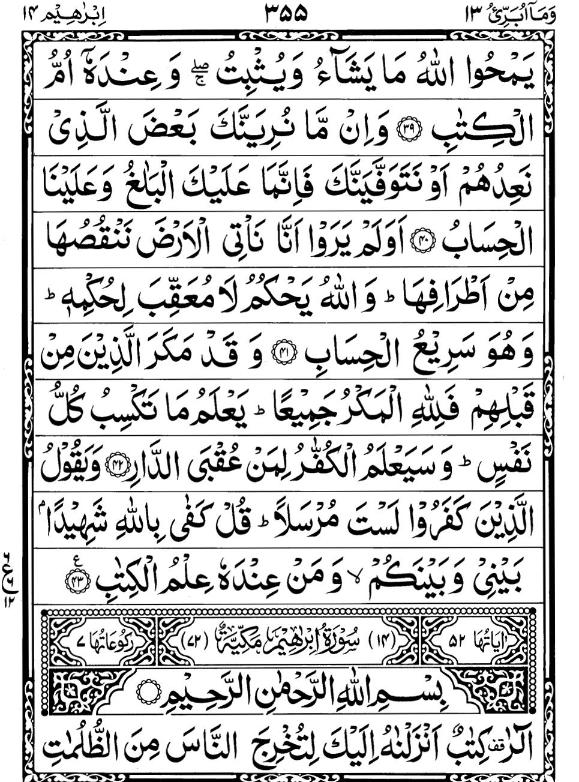 وَمَآ اُبَرِّئُ ١٣ ٣٥٥ اِبْرٰهِيْم ١٤
يَمْحُوا اللّٰهُ مَا يَشَآءُ وَيُثْبِتُ ۖۚ وَعِنْدَهٗٓ اُمُّ
الْكِتٰبِ ﴿٣٩﴾ وَاِنْ مَّا نُرِيَنَّكَ بَعْضَ الَّذِيْ
نَعِدُهُمْ اَوْ نَتَوَفَّيَنَّكَ فَاِنَّمَا عَلَيْكَ الْبَلٰغُ وَعَلَيْنَا
الْحِسَابُ ﴿٤٠﴾ اَوَلَمْ يَرَوْا اَنَّا نَاْتِى الْاَرْضَ نَنْقُصُهَا
مِنْ اَطْرَافِهَا ؕ وَاللّٰهُ يَحْكُمُ لَا مُعَقِّبَ لِحُكْمِهٖ ؕ
وَهُوَ سَرِيْعُ الْحِسَابِ ﴿٤١﴾ وَقَدْ مَكَرَ الَّذِيْنَ مِنْ
قَبْلِهِمْ فَلِلّٰهِ الْمَكْرُ جَمِيْعًا ؕ يَعْلَمُ مَا تَكْسِبُ كُلُّ
نَفْسٍ ؕ وَسَيَعْلَمُ الْكُفّٰرُ لِمَنْ عُقْبَى الدَّارِ ﴿٤٢﴾ وَيَقُوْلُ
الَّذِيْنَ كَفَرُوْا لَسْتَ مُرْسَلًا ؕ قُلْ كَفٰى بِاللّٰهِ شَهِيْدًاۢ
بَيْنِيْ وَبَيْنَكُمْ ۙ وَمَنْ عِنْدَهٗ عِلْمُ الْكِتٰبِ ﴿٤٣﴾ ع
٦ ع ٦ ١٢
اٰيَاتُهَا ٥٢ (١٤) سُوْرَةُ اِبْرٰهِيْمَ مَكِّيَّةٌ (٧٢) رُكُوْعَاتُهَا ٧
بِسْمِ اللّٰهِ الرَّحْمٰنِ الرَّحِيْمِ
الٓرٰ ۫ كِتٰبٌ اَنْزَلْنٰهُ اِلَيْكَ لِتُخْرِجَ النَّاسَ مِنَ الظُّلُمٰتِ